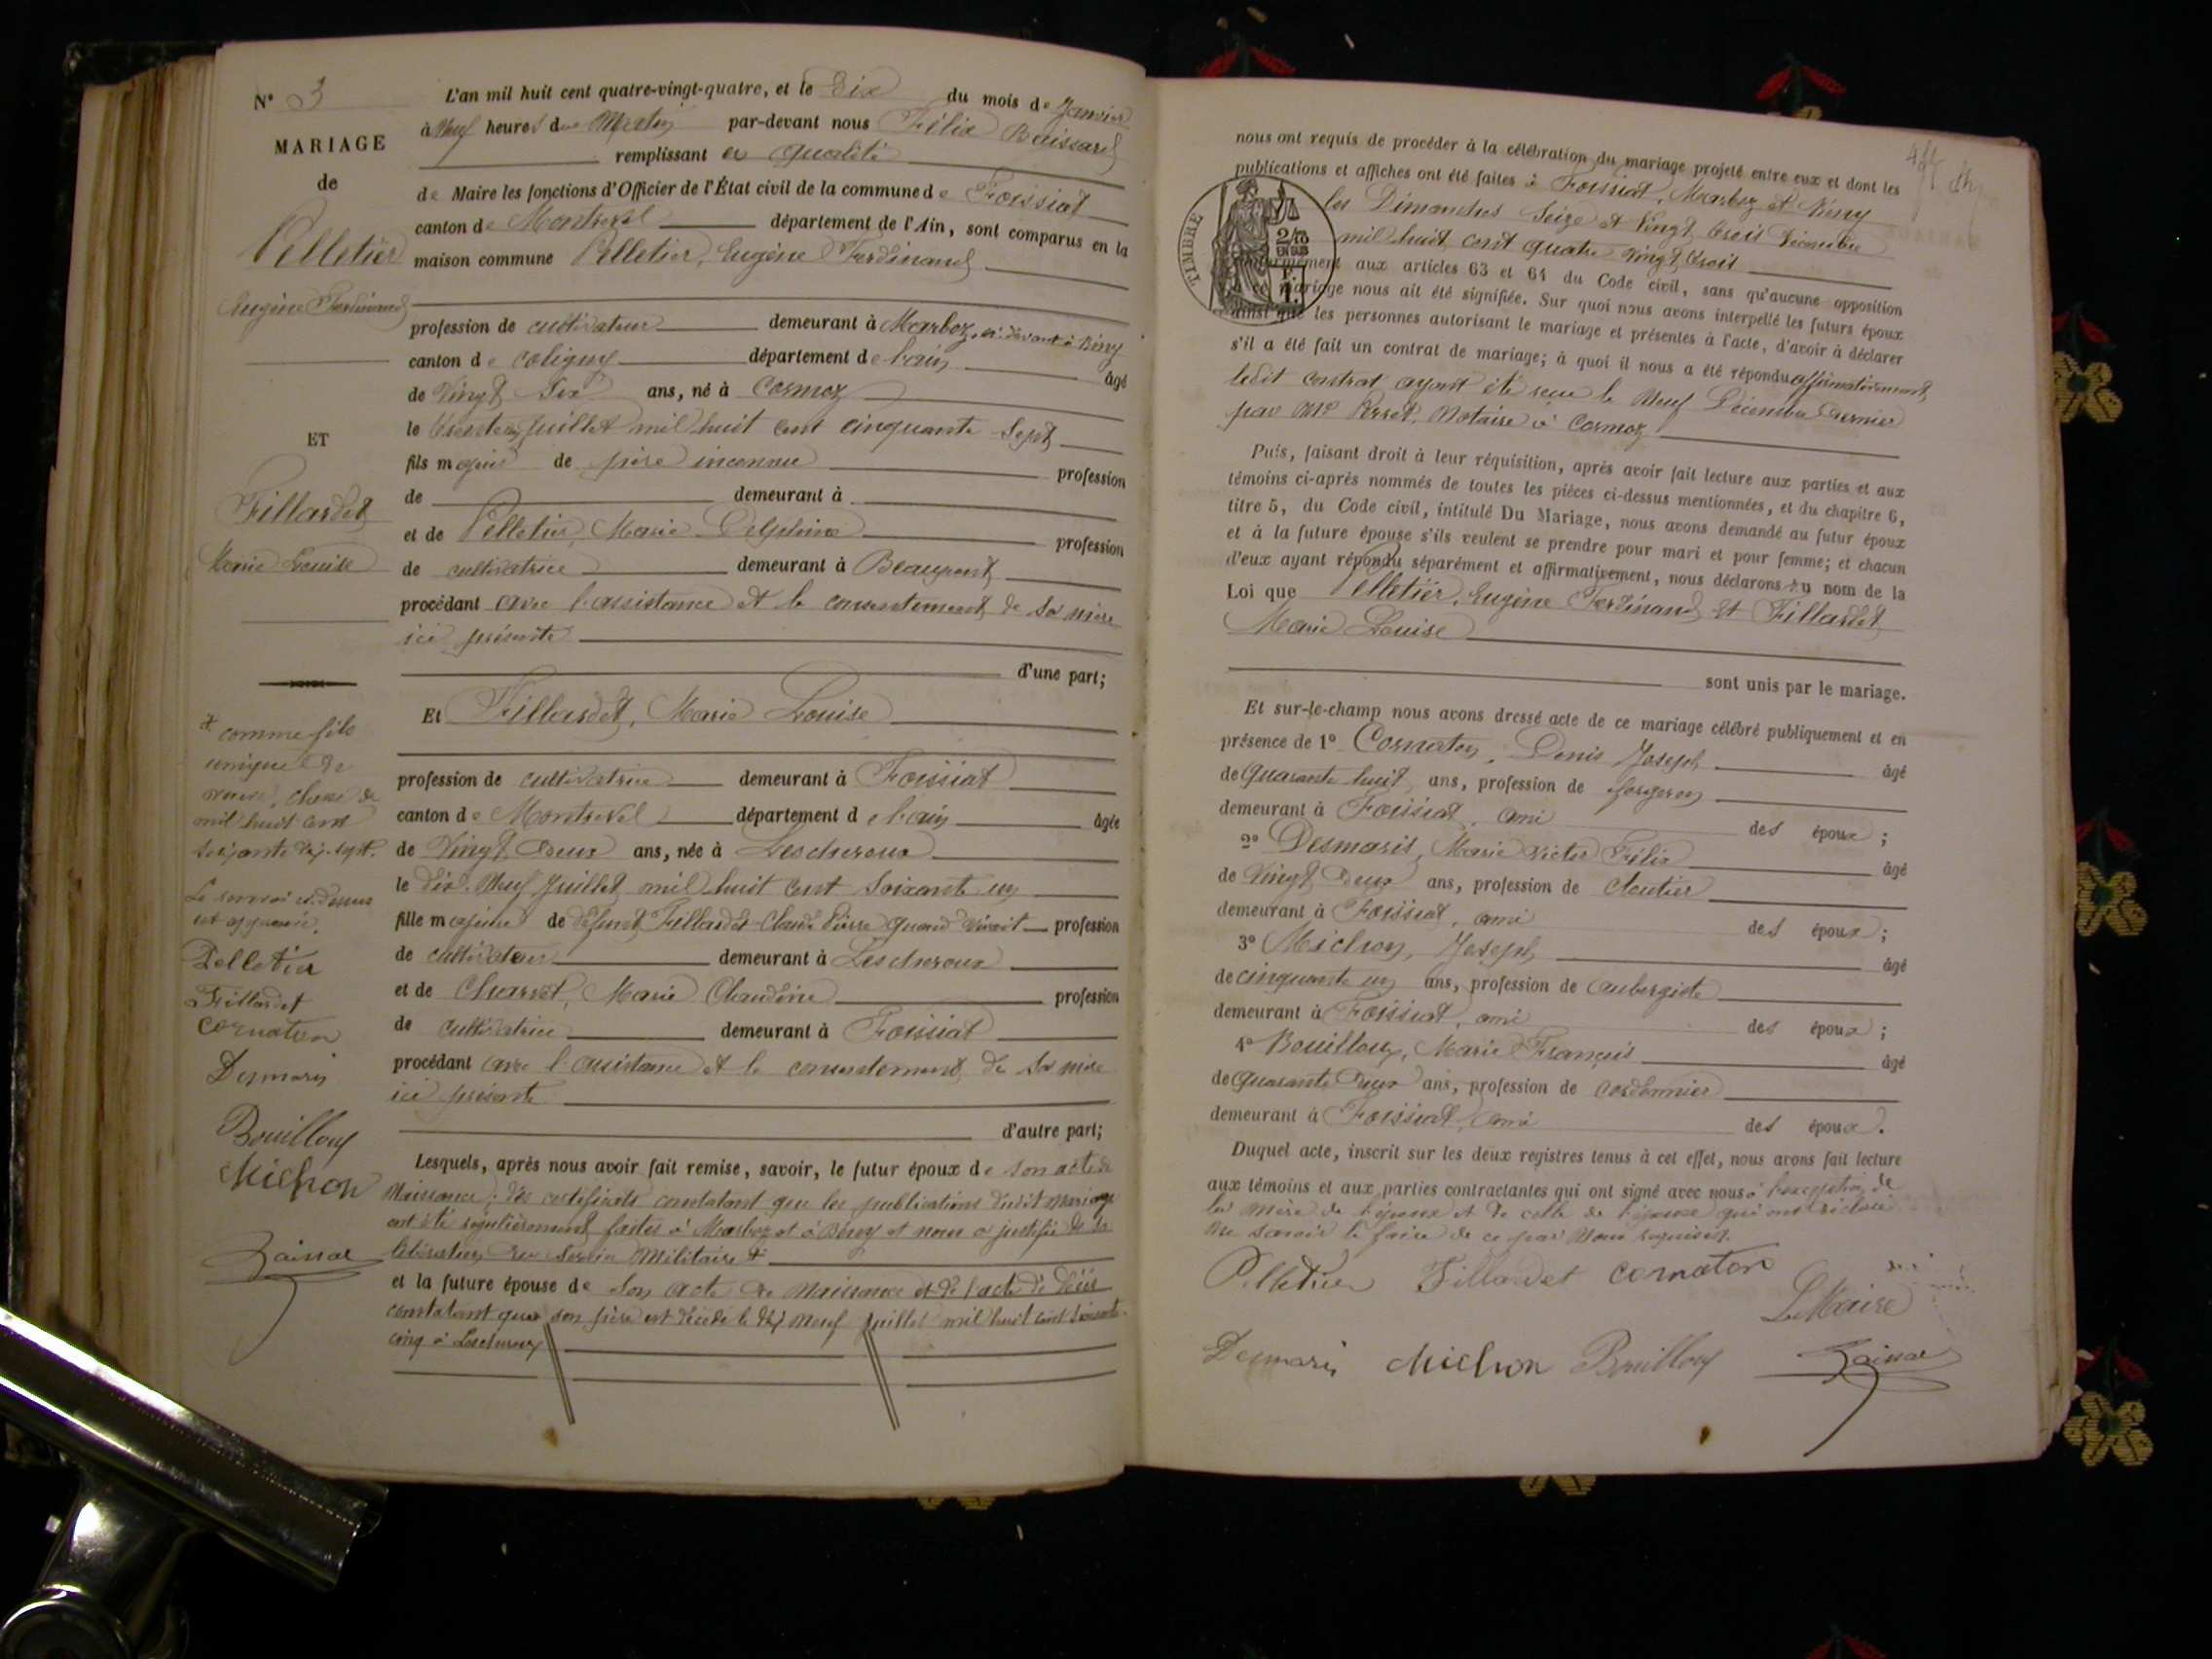 N° 3
MARIAGE
de
Pelletier
Eugène Ferdinand
ET
Fillardet
Marie Louise
* comme fils
unique de
veuve, classe de
mil huit cent
soixante dix-sept.
Le renvoi ci-dessus
est approuvé.
Pelletier
Fillardet
Cornaton
Desmaris
Bouilloux
Michon
L'an mil huit cent quatre-vingt-quatre, et le Dix du mois de Janvier
à Neuf heures du Matin par-devant nous Félix
remplissant en qualité
de Maire les fonctions d'Officier de l'État civil de la commune de Foissiat
canton de Montrevel département de l'Ain, sont comparus en la
maison commune Pelletier, Eugène Ferdinand
profession de cultivateur demeurant à Marboz, ci-devant à Bény
canton de Coligny département de l'ain âgé
de Vingt Six ans, né à Cormoz
le Juillet mil huit cent cinquante Sept
fils majeur de père inconnu profession
de demeurant à
et de Pelletier, Marie Delphine profession
de cultivatrice demeurant à Beaupont
procédant avec l'assistance et le consentement de sa mère
ici présente
d'une part;
Et Fillardet, Marie Louise
profession de cultivatrice demeurant à Foissiat
canton de Montrevel département de l'ain âgée
de Vingt Deux ans, née à Lescheroux
le Dix Neuf Juillet mil huit cent Soixante un
fille majeure de défunt Fillardet Claude Pierre quand vivait profession
de cultivateur demeurant à Lescheroux
et de Charvet, Marie Claudine profession
de cultivatrice demeurant à Foissiat
procédant avec l'assistance et le consentement de sa mère
ici présente
d'autre part;
Lesquels, après nous avoir fait remise, savoir, le futur époux de son acte de
Naissance; des certificats constatant que les publications dudit mariage
ont été régulièrement faites à Marboz et à Bény et nous a justifié de sa
libération du Service Militaire *
et la future épouse de son acte de Naissance et de l'acte de décès
constatant que son père est décédé le dix neuf Juillet mil huit cent soixante
cinq à Lescheroux
nous ont requis de procéder à la célébration du mariage projeté entre eux et dont les
publications et affiches ont été faites à Foissiat, Marboz et Bény
les Dimanches Seize et Vingt trois Décembre
mil huit cent quatre Vingt trois
TIMBRE
conformément aux articles 63 et 64 du Code civil, sans qu'aucune opposition
à ce mariage nous ait été signifiée. Sur quoi nous avons interpellé les futurs époux
ainsi que les personnes autorisant le mariage et présentes à l'acte, d'avoir à déclarer
s'il a été fait un contrat de mariage; à quoi il nous a été répondu affirmativement,
ledit contrat ayant été reçu le Neuf Décembre dernier
par Me Perret, Notaire à Cormoz
Puis, faisant droit à leur réquisition, après avoir fait lecture aux parties et aux
témoins ci-après nommés de toutes les pièces ci-dessus mentionnées, et du chapitre 6,
titre 5, du Code civil, intitulé Du Mariage, nous avons demandé au futur époux
et à la future épouse s'ils veulent se prendre pour mari et pour femme; et chacun
d'eux ayant répondu séparément et affirmativement, nous déclarons au nom de la
Loi que Pelletier, Eugène Ferdinand et Fillardet
Marie Louise
sont unis par le mariage.
Et sur-le-champ nous avons dressé acte de ce mariage célébré publiquement et en
présence de 1° Cornaton, Denis Joseph âgé
de Quarante huit ans, profession de forgeron
demeurant à Foissiat, ami des époux;
2° Desmaris, Marie Victor Félix âgé
de Vingt Deux ans, profession de cloutier
demeurant à Foissiat, ami des époux;
3° Michon, Joseph âgé
de cinquante un ans, profession de aubergiste
demeurant à Foissiat, ami des époux;
4° Bouilloux, Marie François âgé
de Quarante Deux ans, profession de cordonnier
demeurant à Foissiat, ami des époux.
Duquel acte, inscrit sur les deux registres tenus à cet effet, nous avons fait lecture
aux témoins et aux parties contractantes qui ont signé avec nous à l'exception de
la mère de l'époux et de celle de l'épouse qui ont déclaré
ne savoir le faire de ce par Nous requises.
Pelletier Fillardet Cornaton
Le Maire
Desmaris Michon Bouilloux